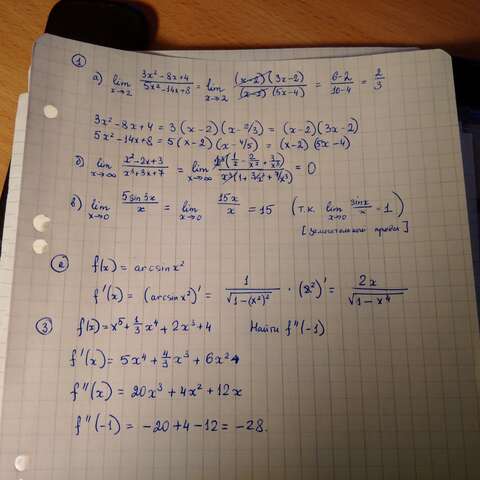 ① а) lim x→2 (3x² - 8x + 4)/(5x² - 14x + 8) = lim x→2 ((x-2)(3x-2))/((x-2)(5x-4)) = (6-2)/(10-4) = 2/3
3x² - 8x + 4 = 3(x-2)(x-2/3) = (x-2)(3x-2)
5x² - 14x + 8 = 5(x-2)(x-4/5) = (x-2)(5x-4)
б) lim x→∞ (x² - 2x + 3)/(x³ + 3x + 7) = lim x→∞ (x³(1/x - 2/x² + 3/x³))/(x³(1 + 3/x² + 7/x³)) = 0
в) lim x→0 (5 sin 3x)/x = lim x→0 15x/x = 15 (т.к. lim x→0 sinx/x = 1)
[замечательной]
② f(x) = arcsin x²
f'(x) = (arcsin x²)' = 1/√(1-(x²)²) · (x²)' = 2x/√(1-x⁴)
③ f(x) = x⁵ + 1/3 x⁴ + 2x³ + 4 Найти f''(-1)
f'(x) = 5x⁴ + 4/3 x³ + 6x²
f''(x) = 20x³ + 4x² + 12x
f''(-1) = -20 + 4 - 12 = -28.